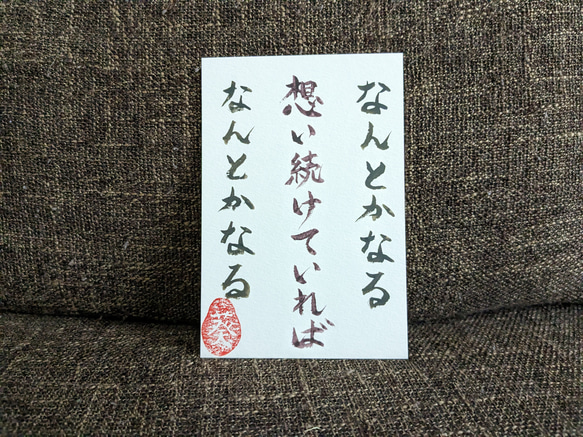 なんとかなる
想い続けていれば
なんとかなる
葵